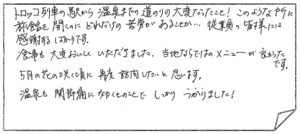 トロッコ列車の駅から 温泉までの 道のりの 大変だったこと! このような 中々に
旅館を 開くのに どれだけの 苦労が あることか… 従業員の 皆様には
感謝する ばかりです。
食事も 大変おいしく いただきました。当地ならではの メニューが 良かった
です。
5月の花の咲く頃に 再度 訪問したいと 思います。
温泉も 関節痛に なかなかのことで しっかり つかりました!